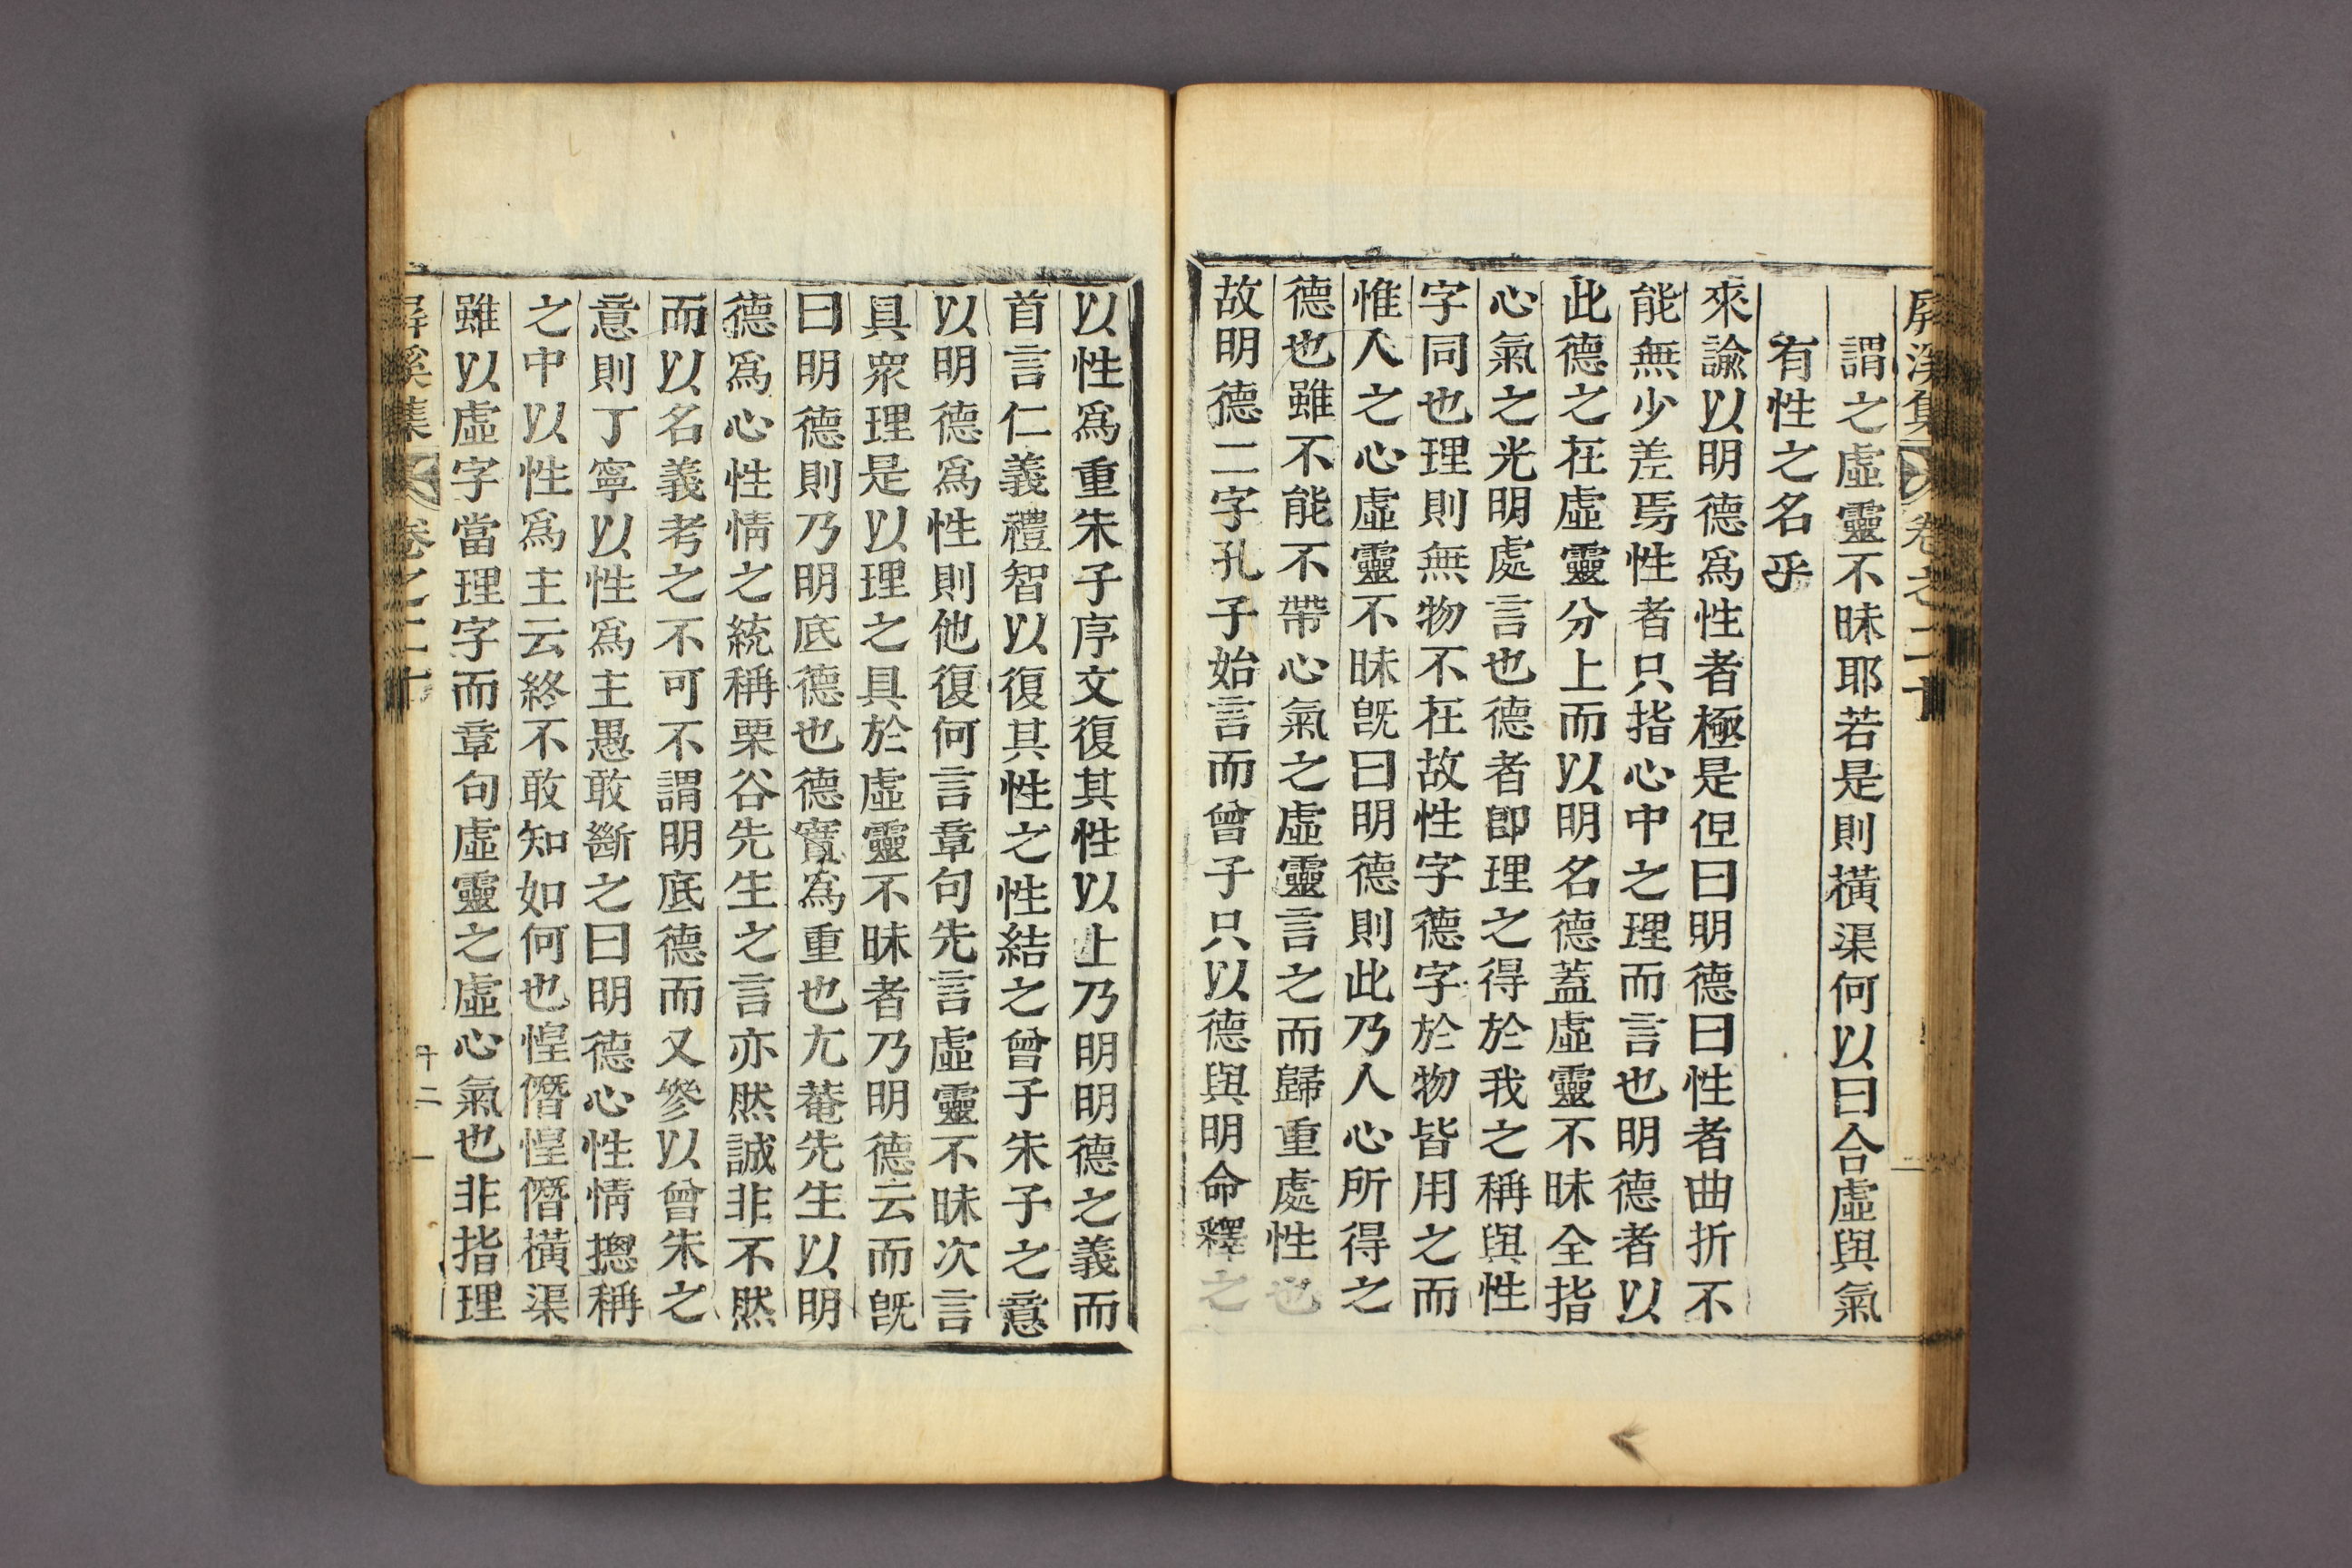 屏溪集 卷之二十
謂之虛靈不昧耶若是則橫渠何以曰合虛與氣
有性之名乎
來諭以明德爲性者極是但曰明德曰性者曲折不
能無少差焉性者只指心中之理而言也明德者以
此德之在虛靈分上而以明名德蓋虛靈不昧全指
心氣之光明處言也德者卽理之得於我之稱與性
字同也理則無物不在故性字德字於物皆用之而
惟人之心虛靈不昧旣曰明德則此乃人心所得之
德也雖不能不帶心氣之虛靈言之而歸重處性也
故明德二字孔子始言而曾子只以德與明命釋之
以性爲重朱子序文復其性以上乃明明德之義而
首言仁義禮智以復其性之性結之曾子朱子之意
以明德爲性則他復何言章句先言虛靈不昧次言
具衆理是以理之具於虛靈不昧者乃明德云而旣
曰明德則乃明底德也德實爲重也尤菴先生以明
德爲心性情之統稱栗谷先生之言亦然誠非不然
而以名義考之不可不謂明底德而又參以曾朱之
意則丁寧以性爲主愚敢斷之曰明德心性情摠稱
之中以性爲主云終不敢知如何也惶僭惶僭橫渠
雖以虛字當理字而章句虛靈之虛心氣也非指理
屏溪集 卷之二十 二